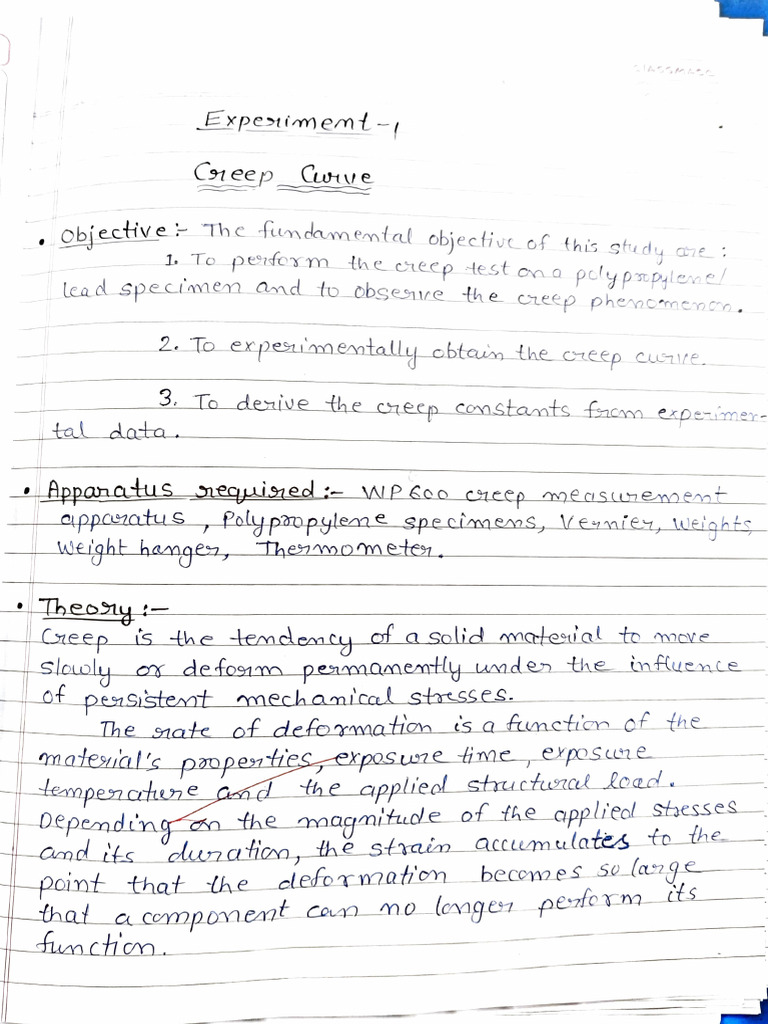 classmate
Experiment-1
Creep Curve
• Objective :- The fundamental objective of this study are :
1. To perform the creep test on a polypropylene/
lead specimen and to observe the creep phenomenon.
2. To experimentally obtain the creep curve.
3. To derive the creep constants from experimen-
tal data.
• Apparatus required :- WP600 creep measurement
apparatus , Polypropylene specimens, Vernier, Weights,
Weight hanger, Thermometer.
• Theory :-
Creep is the tendency of a solid material to move
slowly or deform permanently under the influence
of persistent mechanical stresses.
The rate of deformation is a function of the
material's properties, exposure time, exposure
temperature and the applied structural load.
Depending on the magnitude of the applied stresses
and its duration, the strain accumulates to the
point that the deformation becomes so large
that a component can no longer perform its
function.